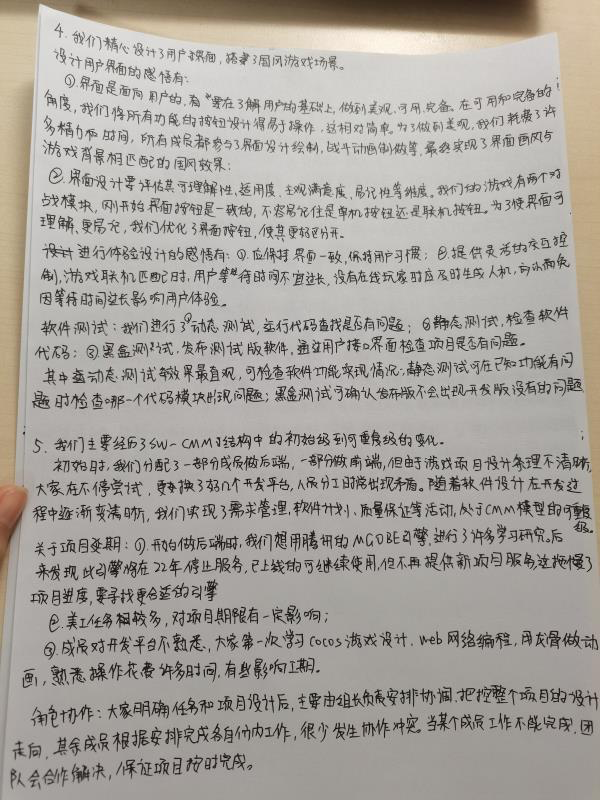 4. 我们精心设计了用户界面，搭建了国风游戏场景。
设计用户界面的感悟有：
①.界面是面向用户的，有要在了解用户的基础上，做到美观、可用、完备。在可用和完备的
角度，我们将所有功能的按钮设计得易于操作，这相对简单。为了做到美观，我们耗费了许
多精力和时间，所有成员都参与了界面设计绘制，战斗动画制做等，最终实现了界面画风与
游戏背景相匹配的国风效果；
②.界面设计要评估其可理解性、适用度、主观满意度、易记性等维度。我们的游戏有两个对
战模块，刚开始界面按钮是一致的，不容易记住是单机按钮还是联机按钮。为了使界面可
理解、更易记，我们优化了界面按钮，使其更好区分开。
进行体验设计的感悟有：①.应保持界面一致，保持用户习惯；②.提供灵活的交互控
制，游戏联机匹配时，用户等待时间不宜过长，没有在线玩家时应及时生成人机，可以避免
因等待时间过长影响用户体验。
软件测试：我们进行了①动态测试，运行代码查找是否有问题；②静态测试，检查软件
代码；③黑盒测试，发布测试版软件，通过用户接口界面检查项目是否有问题。
其中动态测试效果最直观，可检查软件功能实现情况；静态测试可在已知功能有问
题时检查哪一个代码模块出现问题；黑盒测试可确认发布版不会出现开发版没有的问题
5. 我们主要经历了SW-CMM结构中的初始级到可重复级的变化。
初始时，我们分配了一部分成员做后端，一部分做前端，但由于游戏项目设计条理不清晰，
大家在不停尝试，更换了好几个开发平台，人员分工时常出现矛盾。随着软件设计在开发过
程中逐渐变清晰，我们实现了需求管理，软件计划、质量保证等活动，处于CMM模型的可重复级。
关于项目延期：①.开始做后端时，我们想用腾讯的MGOBE引擎，进行了许多学习研究，后
来发现此引擎将在22年停止服务，已上线的可继续使用，但不再提供新项目服务，这拖慢了
项目进度，要寻找更合适的引擎
②.美工任务相较多，对项目期限有一定影响；
③.成员对开发平台不熟悉，大家第一次学习cocos游戏设计，web网络编程，用龙骨做动
画，熟悉操作花费许多时间，有些影响工期。
角色协作：大家明确任务和项目设计后，主要由组长负责安排协调、把控整个项目的设计
走向，其余成员根据安排完成各自份内工作，很少发生协作冲突。当某个成员工作不能完成，团
队会合作解决，保证项目按时完成。